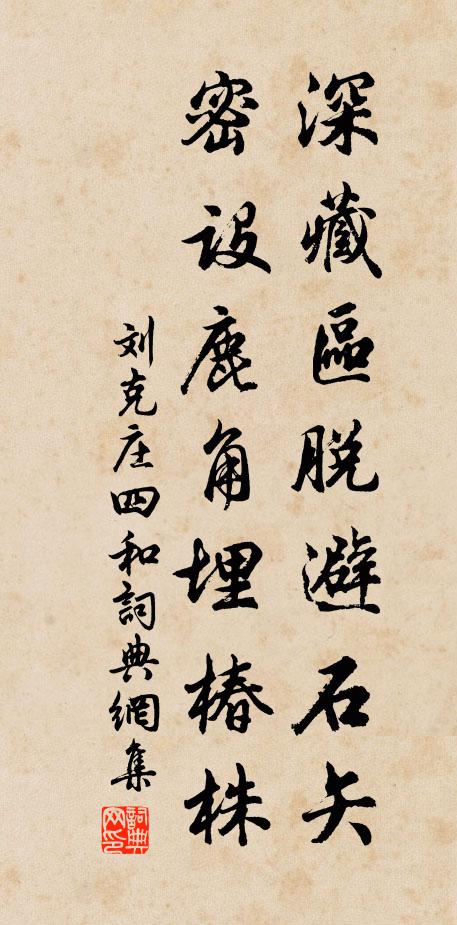 深藏區脱避石矢
密设鹿角埋椿株
刘克庄四和詞典網集
詞典網印